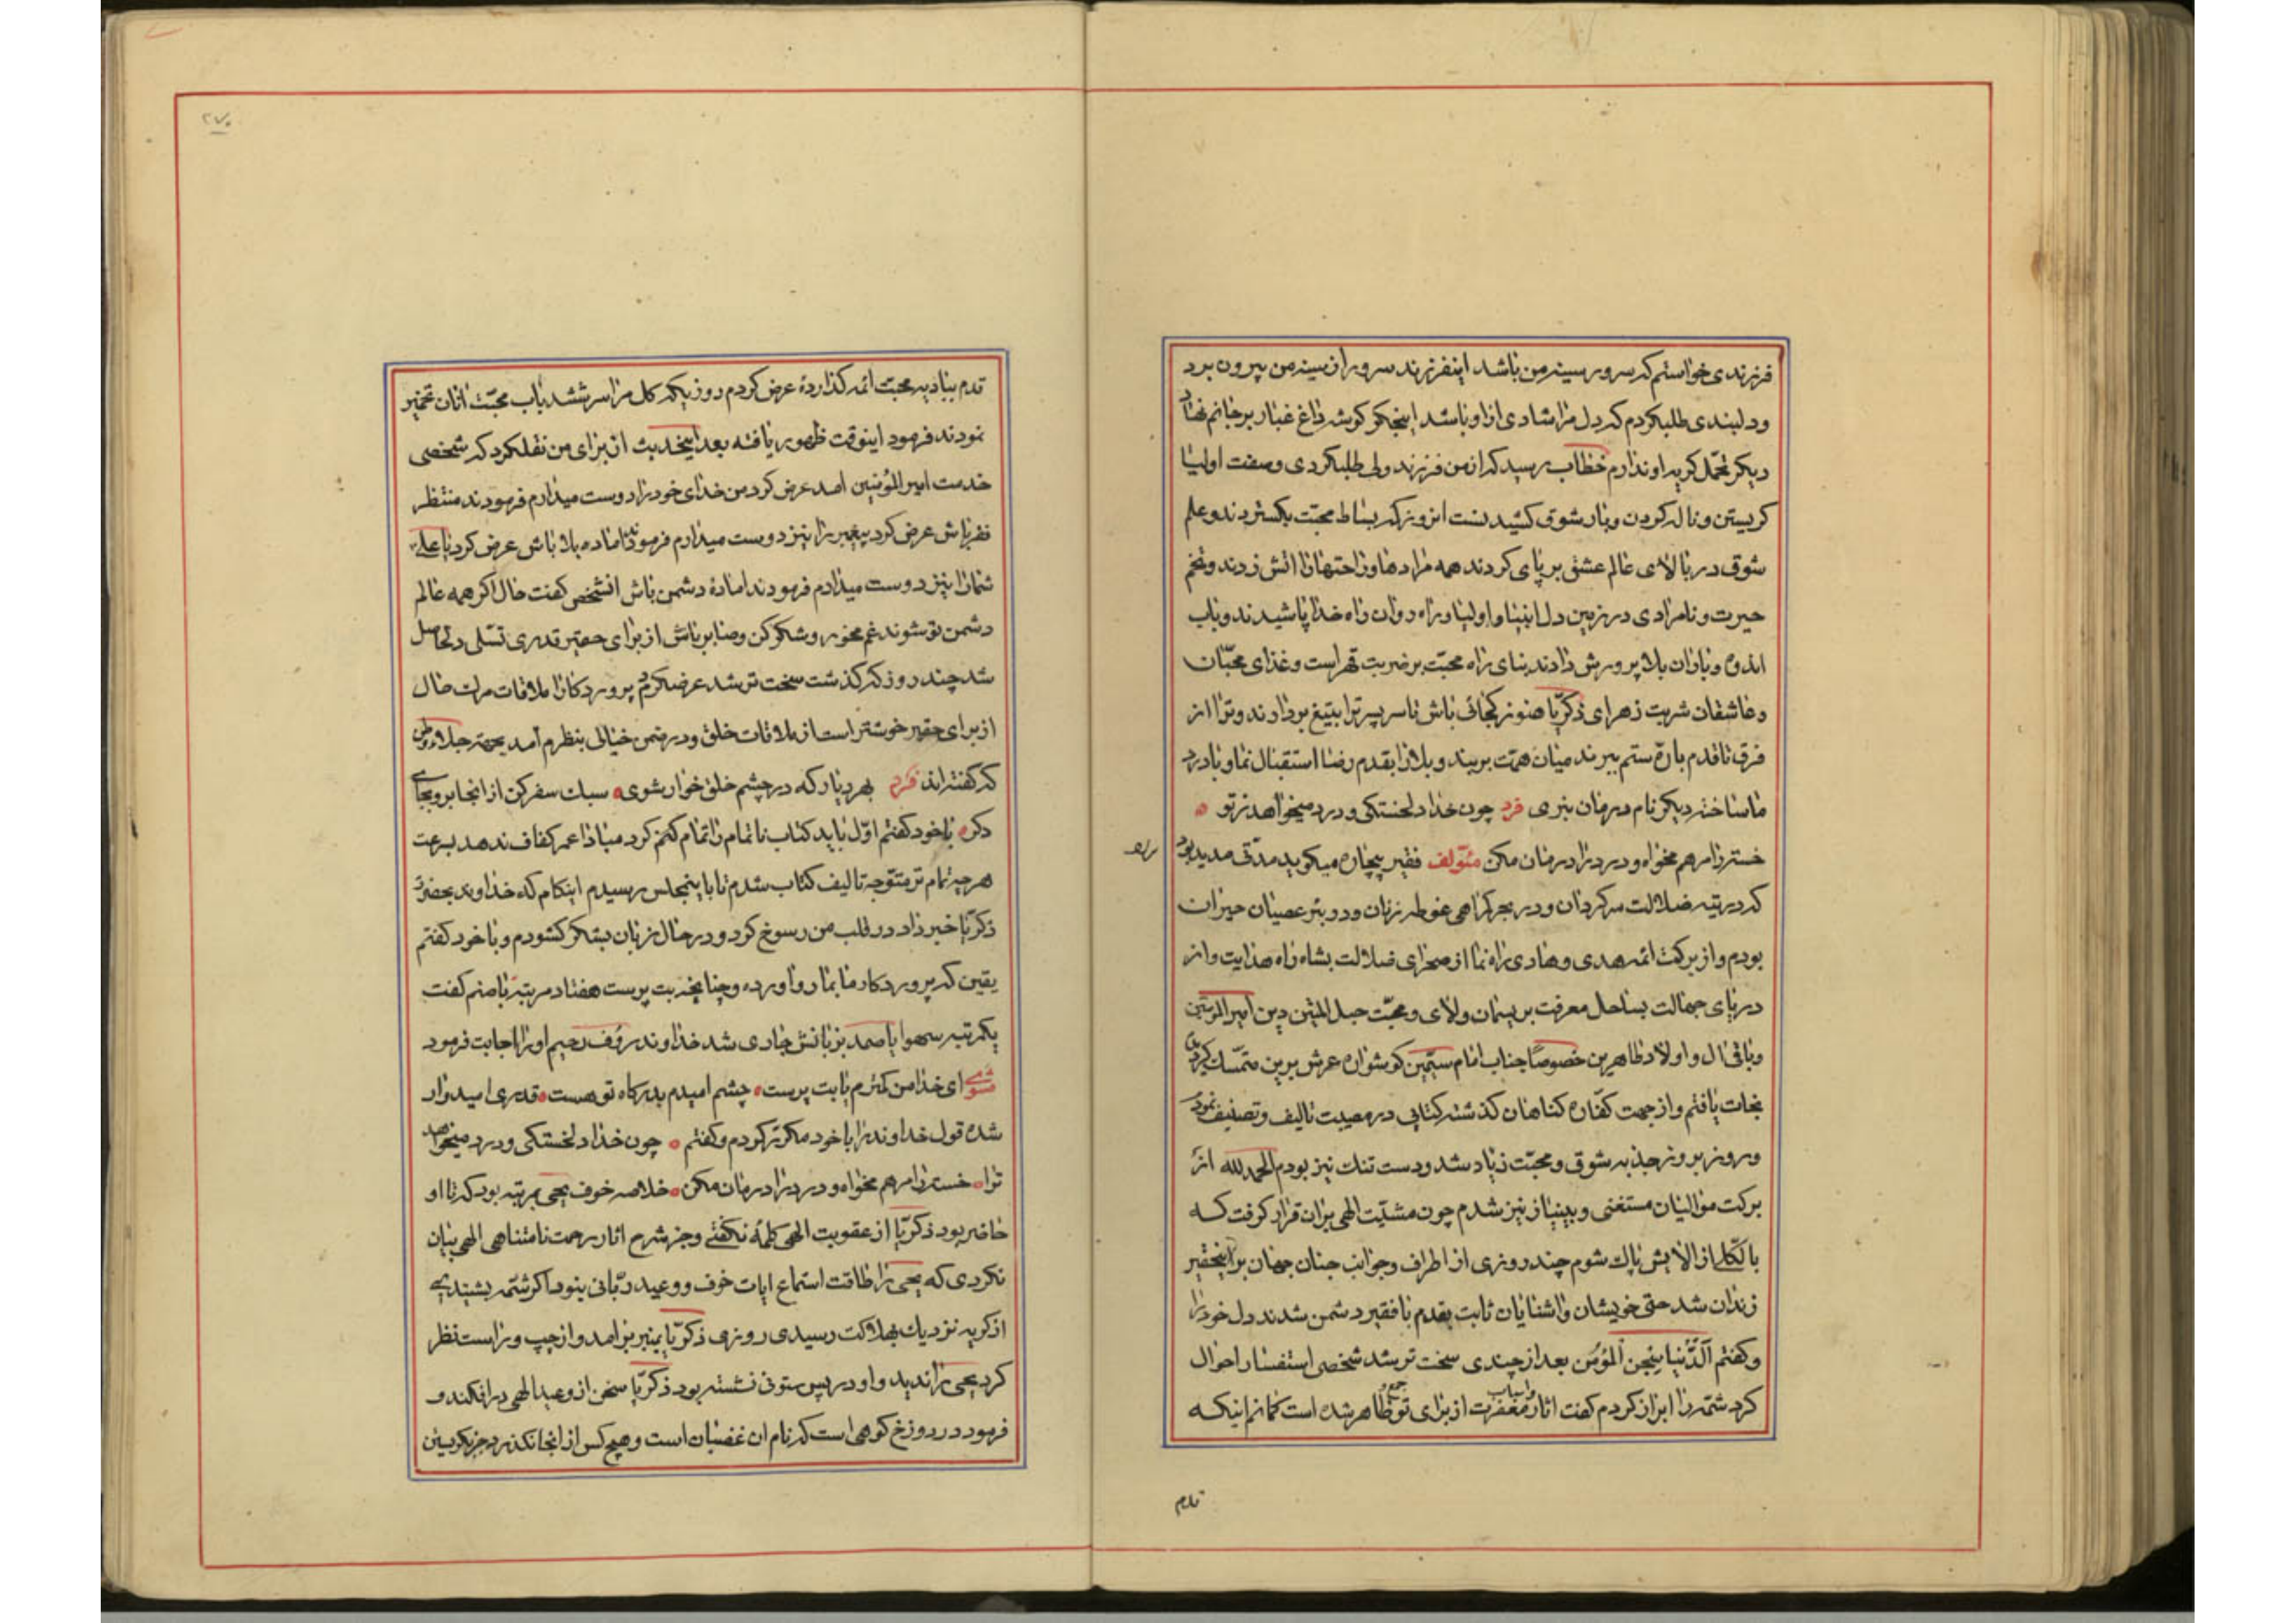 فرزندی خواستم که سرور سینه من باشد اینفرزند سرور از سینه من بیرون برد
ودلبندی طلبکردم که دل مرا شادی از او باشد اینجکر کوشه داغ غبار بر جانم نهاد
دیکر تحمّل کریه او ندارم خطاب رسید که از من فرزند ولی طلبکردی وصفت اولیا
کریستن و ناله کردن و بار شوق کشیدنست انروز که بساط محبّت بکستردند و علم
شوق در بالای عالم عشق بر پای کردند همه مرادها و راحتها را اتش زدند و تخم
حیرت و نامرادی در زمین دل انبیا و اولیا و راه روان راه خدا پاشیدند و باب
اندوه و باران بلا پرورش دادند بنای راه محبّت بر ضربت قهر است و غذای محبّان
و عاشقان شربت زهر ای ذکریّا هنوز کجائی باش تا سر پسر ترا بتیغ بردارند و ترا از
فرق تا قدم بارّه ستم ببرند میان همّت بربند و بلا را بقدم رضا استقبال نما و با درد
ما ساخته دیکر نام درمان نبری فرد چون خدا دلخستکی و درد میخواهد ز تو
خسته را مرهم مخواه و درد را درمان مکن مئوّلف فقیر بیچاره میکوید مدّتی مدید بود
که در تیه ضلالت سرکردان و در بحر کمراهی غوطه زنان و در بئر عصیان حیران
بودم و از برکت ائمه هدی و هادی راه نما از صحرای ضلالت بشاه راه هدایت و از
دریای جهالت بساحل معرفت بریسمان ولای و محبّت حبل المتین دین امیرالمؤمنین
و باقی ال و اولاد طاهرین خصوصًا جناب امام سیّمین کوشواره عرش برین متمسّک
نجات یافتم و از جهت کفّاره کناهان کذشته کتابی در مصیبت تالیف و تصنیف نمود
و روز بروز جذبه شوق و محبّت زیاد شد و دست تنک نیز بودم الحمدلله از
برکت موالیان مستغنی و بینیاز نیز شدم چون مشیّت الهی بران قرار کرفت که
بالکّل از الایش پاک شوم چند روزی از اطراف و جوانب چنان جهان بر اینحقیر
زندان شد حتی خویشان و اشنایان ثابت بقدم با فقیر دشمن شدند دل خود را
و کفتم الدّنیا سجن المؤمن بعد از چندی سخت تر شد شخصی استفسار احوال
کرد شمّه را ابراز کردم کفت اثار و اسباب مغفرت از برای تو ظاهر شده است کمانم اینکه
قدم
۲۷۰
قدم ببادیه محبّت ائمه کذارده عرض کردم روزیکه کل مرا سرشتند باب محبّت انان تخمیر
نمودند فرمود اینوقت ظهور یافته بعد اینحدیث از برای من نقلکرد که شخصی
خدمت امیرالمؤمنین امد عرض کرد من خدای خود را دوست میدارم فرمودند منتظر
فقر باش عرض کرد پیغمبر را نیز دوست میدارم فرمودند اماده بلا باش عرض کرد یا علی
شما را نیز دوست میدارم فرمودند اماده دشمن باش انشخص کفت حال اکر همه عالم
دشمن تو شوند غم مخور و شکر کن و صابر باش از برای حقیر قدری تسلّی دل حاصل
شد چند روز که کذشت سخت تر شد عرضکردم پروردکارا ملاقات مرک حال
از برای حقیر خوشتر است از ملاقات خلق و در ضمن خیالی بنظرم آمد بجهته جلاء وطن
که کفته اند فرد بهر دیار که در چشم خلق خوار شوی سبک سفر کن از انجا برو بجای
دکر با خود کفتم اوّل باید کتاب ناتمام را تمام کنم کرد مبادا عمر کفاف ندهد بسرعت
هرچه تمام تر متوّجه تالیف کتاب شدم تا باینمجلس رسیدم اینکلام که خداوند بحضرت
ذکریّا خبر داد در قلب من رسوخ کرد و در حال زبان بشکر کشودم و با خود کفتم
یقین که پروردکار ما بما رو اورده و چنانچه بت پرست هفتاد مرتبه یا صنم کفت
یکمرتبه سهوا یا صمد بزبانش جاری شد خداوند رؤف رحیم او را اجابت فرمود
مثنوی ای خدا من کمترم یا بت پرست چشم امیدم بدرکاه تو هست قدری امیدوار
شده قول خداوند را با خود مکرّر کردم و کفتم چون خدا دلخستکی و درد میخواهد
ترا خسته را مرهم مخواه و درد را درمان مکن خلاصه خوف یحیی بمرتبه بود که تا او
حاضر بود ذکریّا از عقوبت الهی کلمه نکفتی و جز شرح اثار رحمت نامتناهی الهی بیان
نکردی که یحیی را طاقت استماع ایات خوف و وعید ربّانی نبود اکر شمّه بشنیدی
از کریه نزدیک بهلاکت رسیدی روزی ذکریّا بمنبر برامد و از چپ و راست نظر
کرد یحیی را ندید و او در پس ستونی نشسته بود ذکریّا سخن از وعید الهی در افکند و
فرمود در دوزخ کوهی است که نام ان غضبان است و هیچ کس از انجا نکذرد جز بکریستن